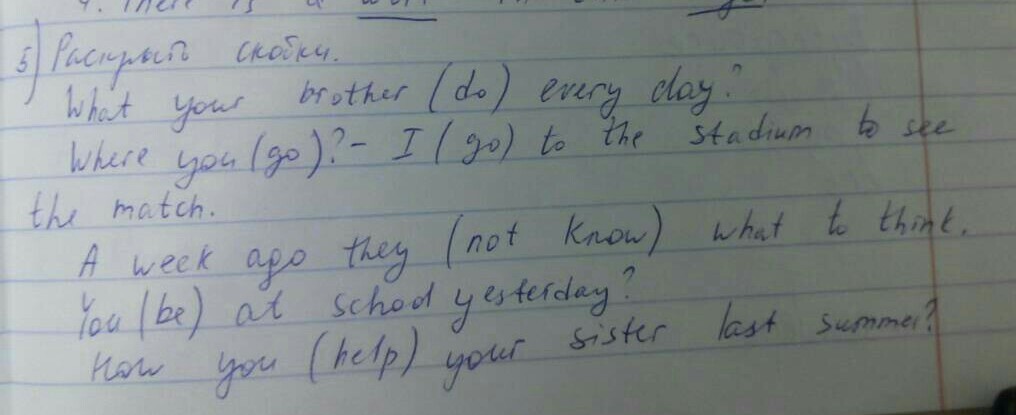 4. There is a
5) Раскрыть скобки.
What your brother (do) every day?
Where you (go)? - I (go) to the stadium to see
the match.
A week ago they (not know) what to think.
You (be) at school yesterday?
How you (help) your sister last summer?